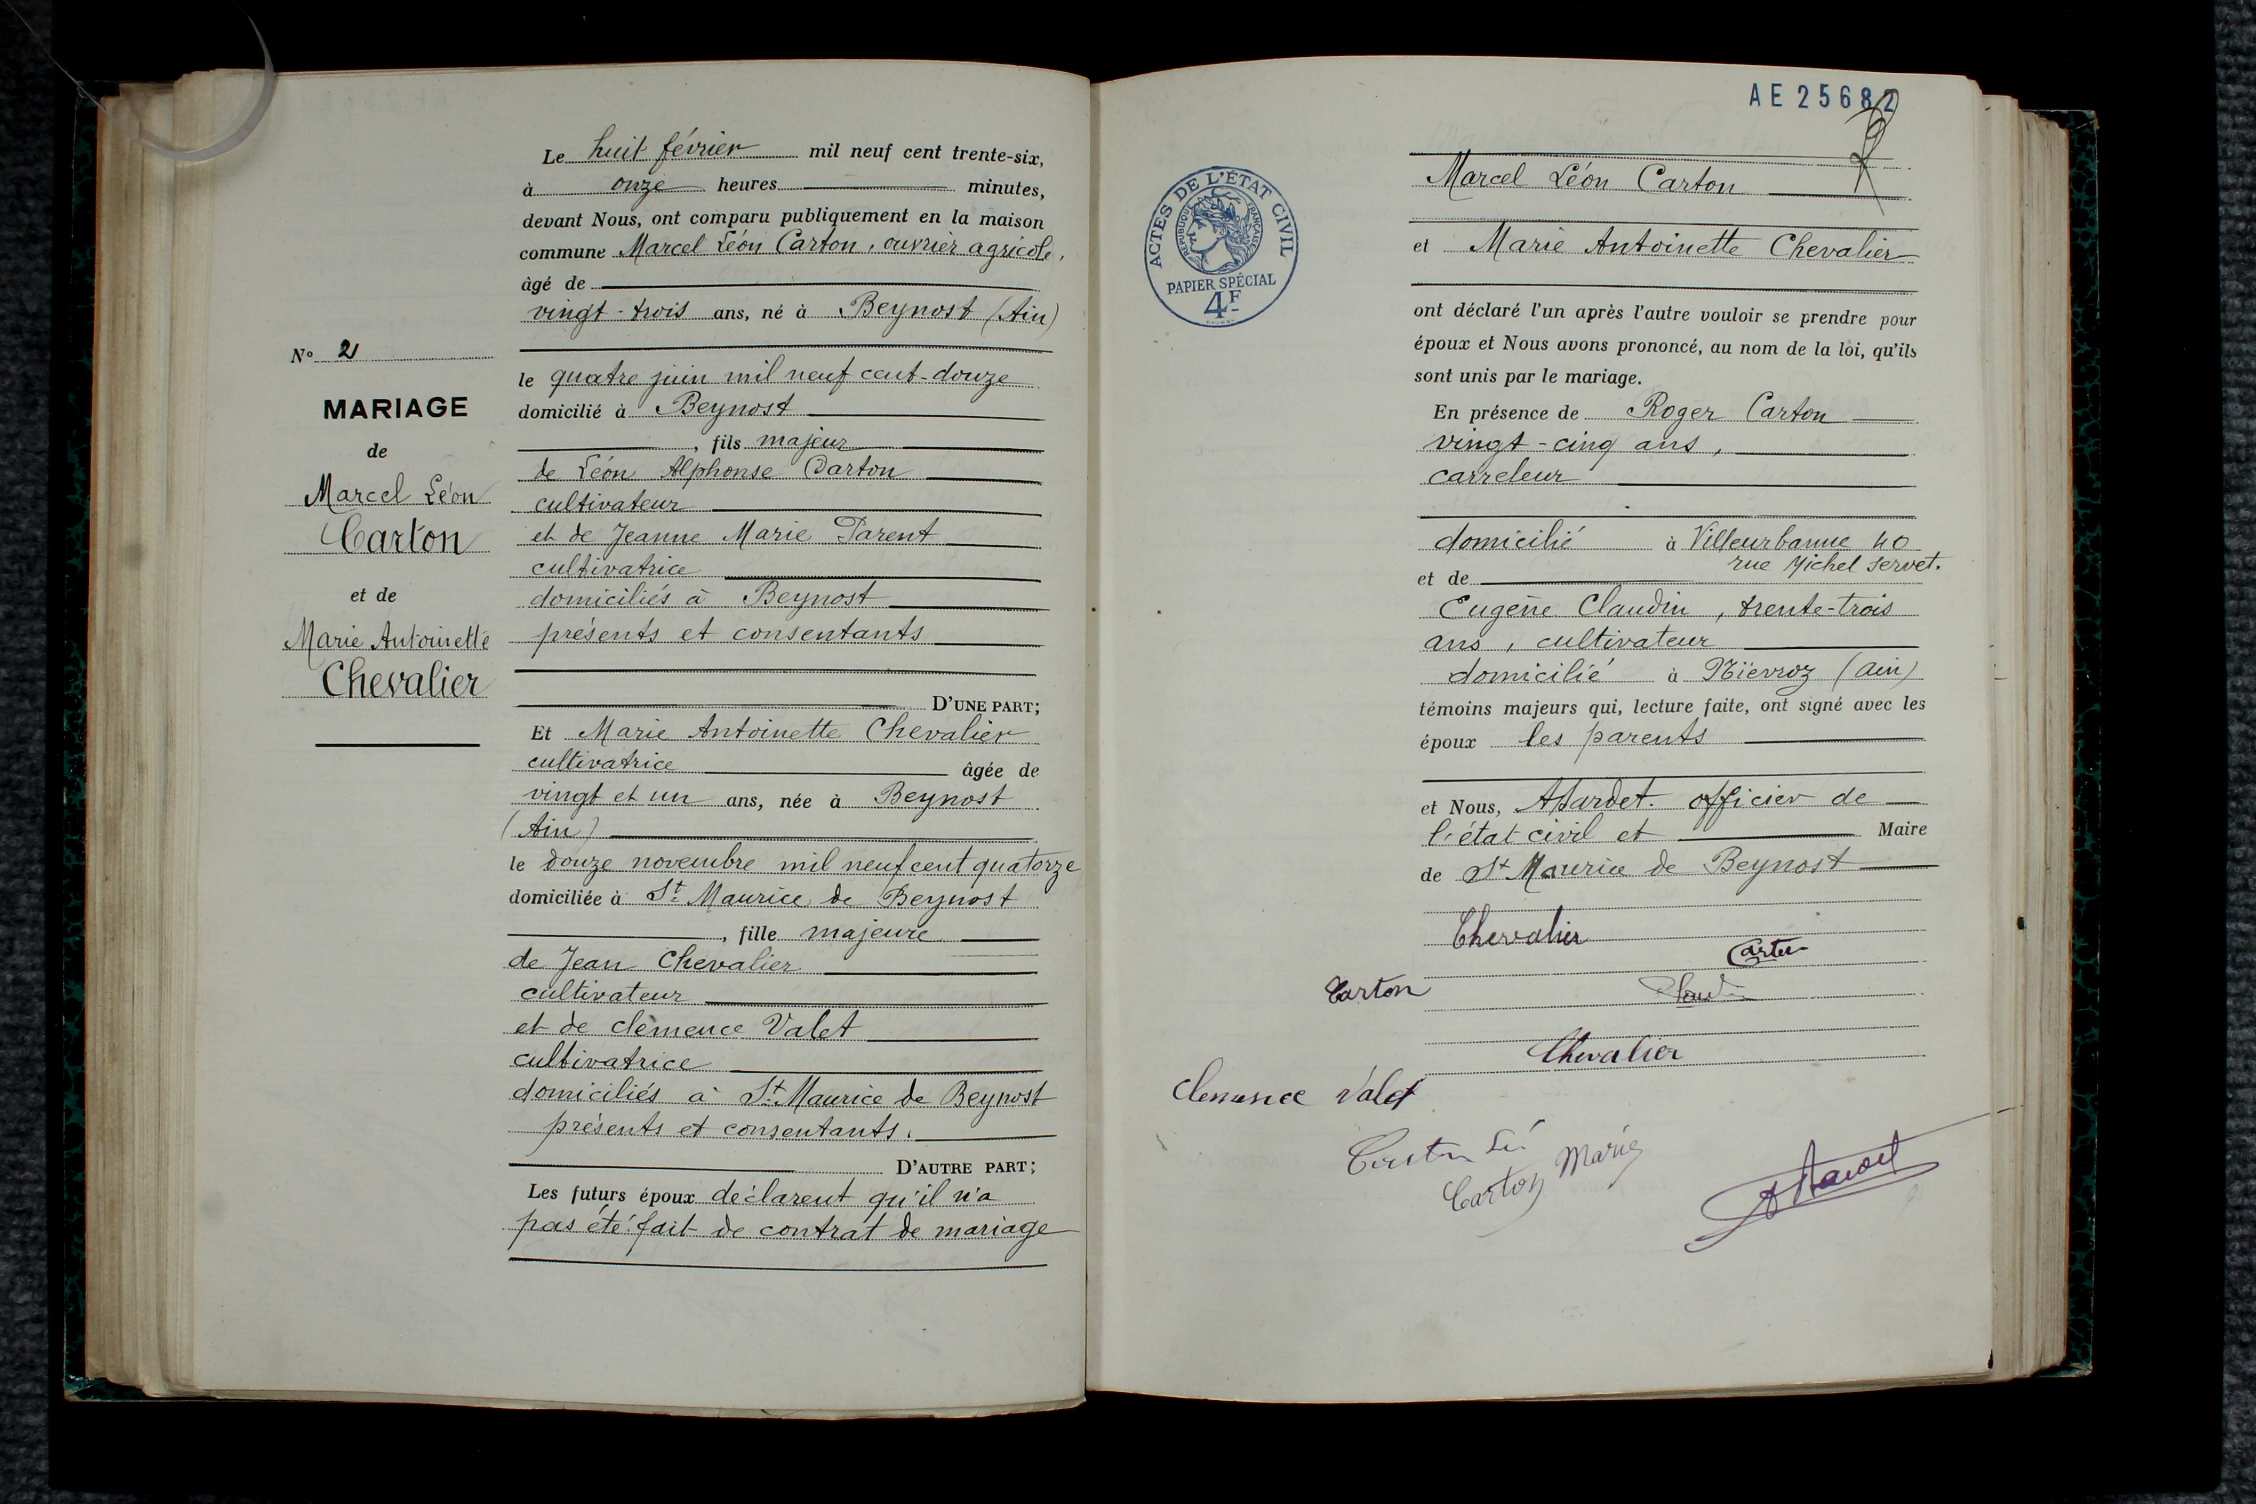 Le huit février mil neuf cent trente-six,
à onze heures minutes,
devant Nous, ont comparu publiquement en la maison
commune Marcel Léon Carton, ouvrier agricole,
âgé de
vingt-trois ans, né à Beynost (Ain)
N° 2
le quatre juin mil neuf cent-douze
MARIAGE
domicilié à Beynost
de
, fils majeur
Marcel Léon
de Léon Alphonse Carton
cultivateur
Carton
et de Jeanne Marie Parent
cultivatrice
et de
domiciliés à Beynost
Marie Antoinette
présents et consentants
Chevalier
D'UNE PART;
Et Marie Antoinette Chevalier
cultivatrice âgée de
vingt et un ans, née à Beynost
(Ain)
le douze novembre mil neuf cent quatorze
domiciliée à St Maurice de Beynost
, fille majeure
de Jean Chevalier
cultivateur
et de clémence Valet
cultivatrice
domiciliés à St Maurice de Beynost
présents et consentants.
D'AUTRE PART;
Les futurs époux déclarent qu'il n'a
pas été fait de contrat de mariage
AE 25682
ACTES DE L'ÉTAT CIVIL
RÉPUBLIQUE FRANÇAISE
PAPIER SPÉCIAL
4F
Marcel Léon Carton
et Marie Antoinette Chevalier
ont déclaré l'un après l'autre vouloir se prendre pour
époux et Nous avons prononcé, au nom de la loi, qu'ils
sont unis par le mariage.
En présence de Roger Carton
vingt-cinq ans,
carreleur
domicilié à Villeurbanne 40
rue Michel Servet.
et de
Eugène Claudin, trente-trois
ans, cultivateur
domicilié à Niévroz (Ain)
témoins majeurs qui, lecture faite, ont signé avec les
époux les parents
et Nous, officier de
l'état civil et Maire
de St Maurice de Beynost
Chevalier
Carton
Carton
Chevalier
Clemence Valet
Carton
Carton Marie